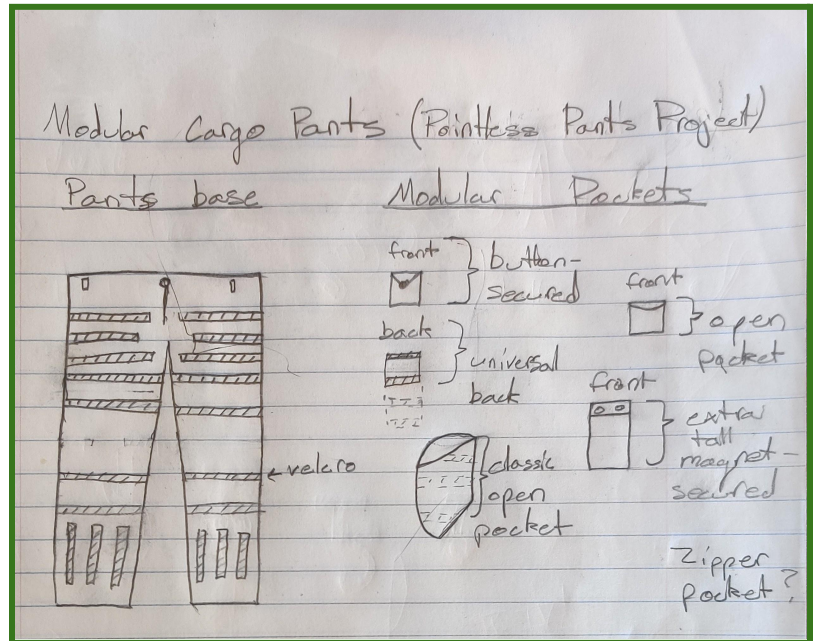 Modular Cargo Pants (Pointless Pants Project)
Pants base
Modular Pockets
front
button-
secured
back
universal
back
classic
open
pocket
front
open
pocket
front
extra
tall
magnet-
secured
Zipper
pocket?
velcro